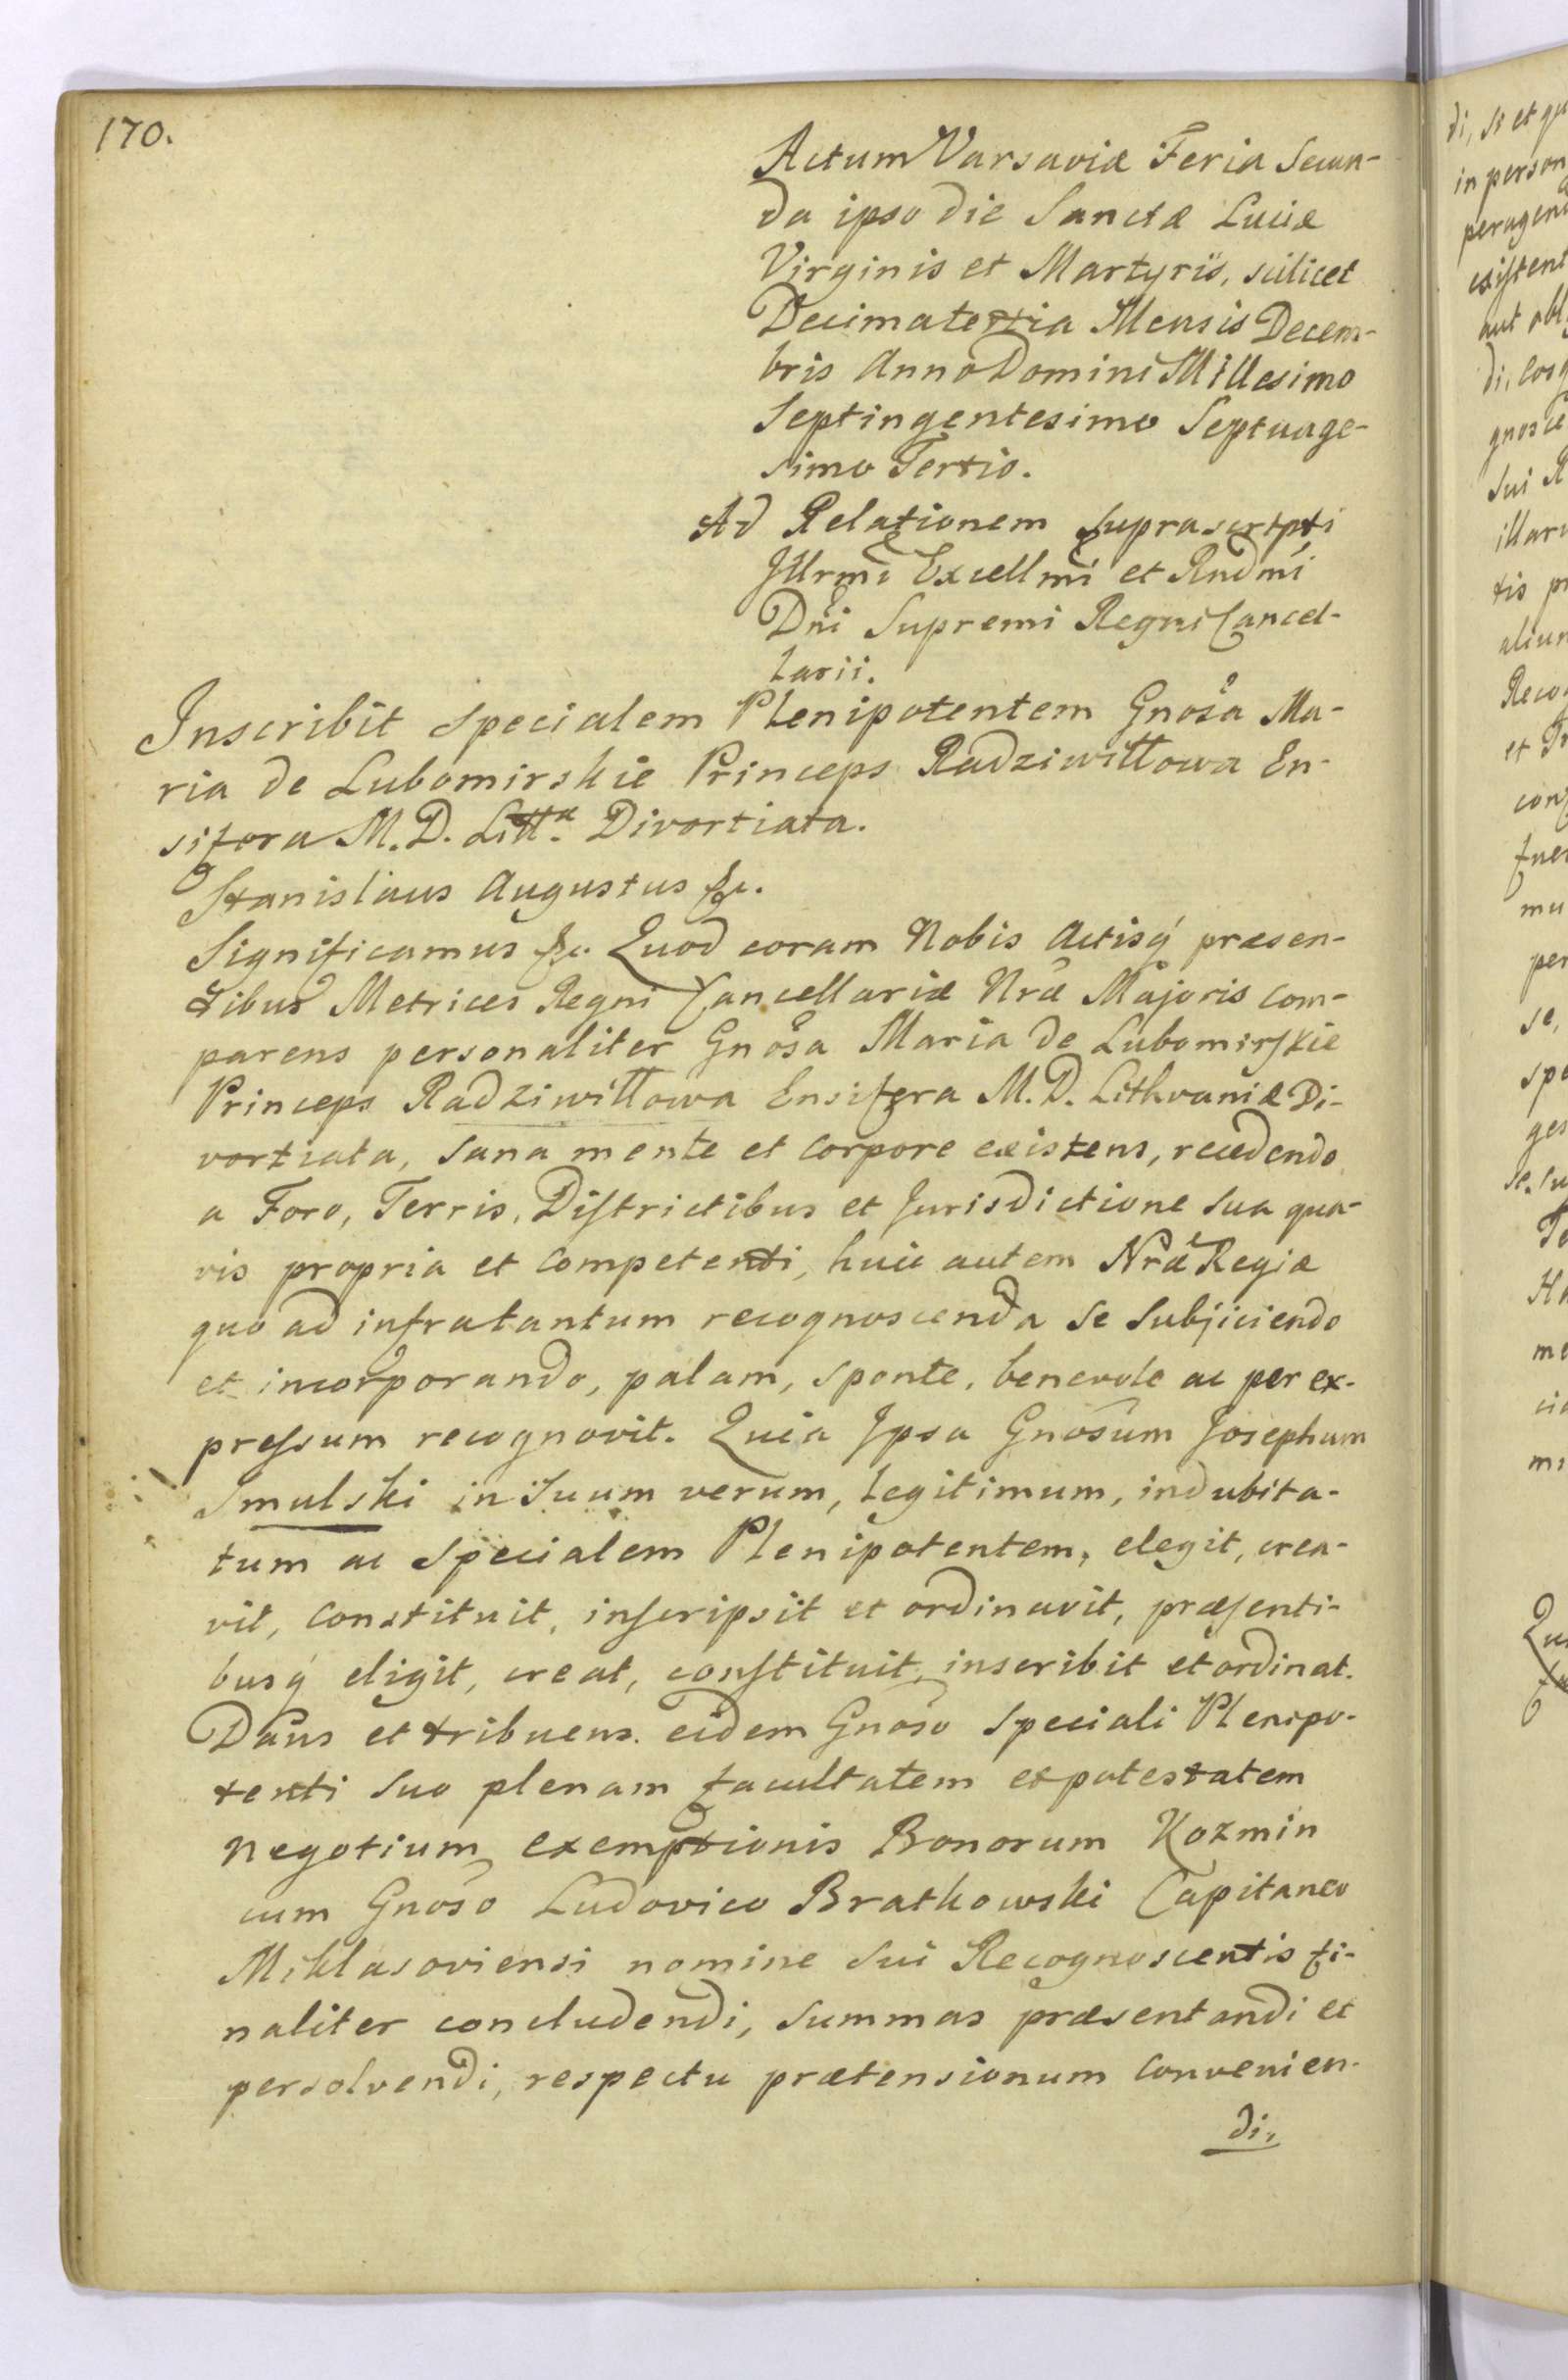 170.
Actum Varsaviæ Feria Secun-
da ipso die Sanctæ Luciæ
Virginis et Martyris, scilicet
Decimatertia Mensis Decem-
bris Anno Domini Millesimo
Septingentesimo Septuage-
simo Tertio.
Ad Relationem suprascripti
Jllrmi Excellmi et Rndmi
Dni Supremi Regni Cancel-
larii.
Inscribit specialem Plenipotentem Gnosa Ma-
ria de Lubomirskie Princeps Radziwiłłowa En-
sifera M. D. Litt.æ Divortiata.
Stanislaus Augustus &c.
Significamus &c. Quod coram Nobis Actisq́ præsen-
tibus Metrices Regni Cancellariæ Nræ Majoris com-
parens personaliter Gnosa Maria de Lubomirskie
Princeps Radziwiłłowa Ensifera M. D. Lithvaniæ Di-
vortiata, sana mente et corpore existens, recedendo
a Foro, Terris, Districtibus et Jurisdictione sua qua-
vis propria et competenti, huic autem Nræ Regiæ
quo ad infratantum recognoscenda se subjiciendo
et incorporando, palam, sponte, benevole ac per ex-
pressum recognovit. Quia Jpsa Gnosum Josephum
Smulski in suum verum, legitimum, indubita-
tum ac specialem Plenipotentem, elegit, crea-
vit, constituit, inscripsit et ordinavit, præsenti-
busq́ eligit, creat, constituit, inscribit et ordinat.
Dans et tribuens eidem Gnoso speciali Plenipo-
tenti suo plenam facultatem et potestatem
negotium exemptionis Bonorum Kozmin
cum Gnoso Ludovico Bratkowski Capitaneo
Miklasoviensi nomine sui Recognoscentis fi-
naliter concludendi, summas præsentandi et
persolvendi, respectu prætensionum convenien-
di,
di, si et
in person
existent
aut
sui
tis
et
se,